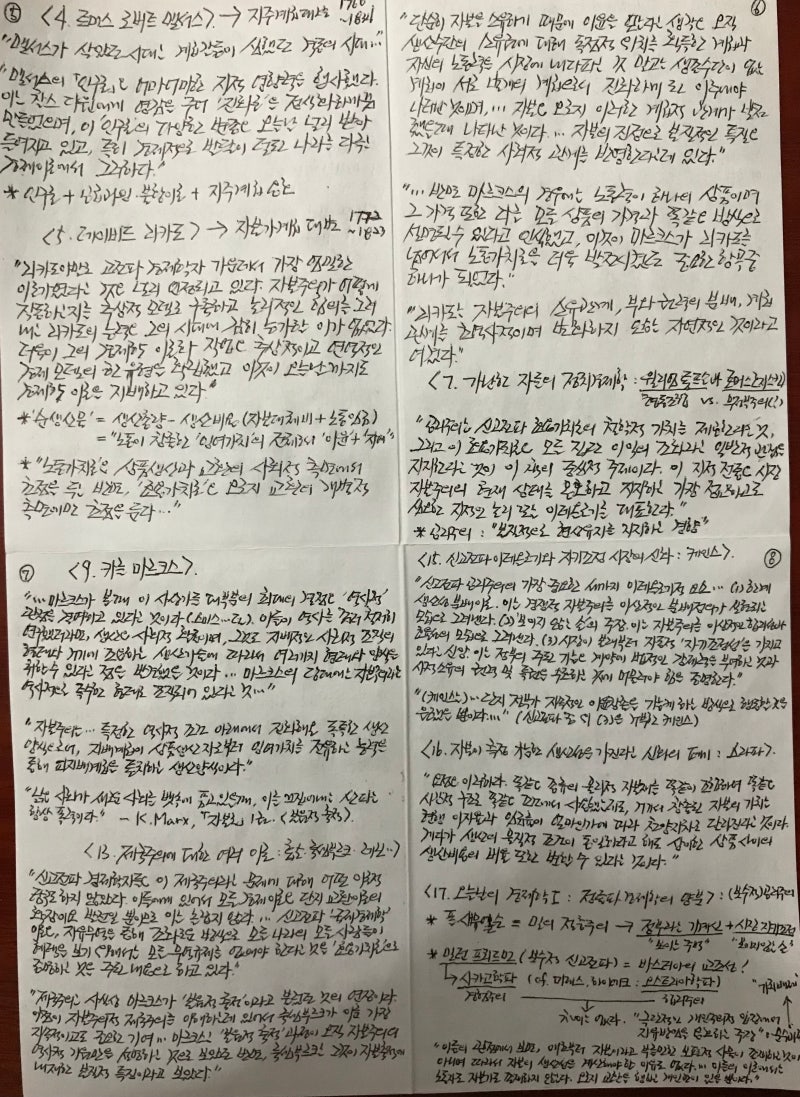 ⑤ <4. 토머스 로버트 맬서스> → 지주계급 대변
"맬서스가 살았던 시대는 계급갈등이 심했던 격동의 시대..."
"맬서스의 『인구론』은 어마어마한 지적 영향력을 행사했다.
이는 찰스 다윈에게 영감을 주어 '진화론'을
만들었으며, 이 '인구론'의 다양한 변종은 오늘날 널리 받아
들여지고 있고, 특히 경제적으로 발전이 덜한 나라를 다룬
경제이론에서 그러하다."
* 인구론 + 과잉·불황이론 + 지주계급 옹호
<5. 데이비드 리카도> → 자본가계급 대변 1772~1823
"리카도야말로 고전파 경제학자 가운데서 가장 엄밀한
이론가였다는 것은 널리 인정되고 있다. 자본주의가 어떻게
작동하는지를 추상적 모델로 구축하고 논리적인 함의를 그려
내는 리카도의 능력은 그의 시대에 감히 능가한 이가 없었다.
더욱이 그의 경제학 이론화 작업은 추상적이고 연역적인
경제 모델의 한 유형을 확립했고 이것이 오늘날까지도
경제학 이론을 지배하고 있다."
* '순생산물' = 생산총량 - 생산비용 (자본대체비 + 노동임금)
= "노동이 창출한 '잉여가치'의 전체로서 '이윤' + '지대'"
* "노동가치론은 상품생산과 교환의 사회적 측면에서
초점을 두는 반면, '효용가치론'은 오로지 교환의 개별적
측면에만 초점을 둔다..."
⑥
"단순히 자본을 소유하기 때문에 이윤을 얻는다는 생각은 오직
생산수단의 소유권에 대해 독점적 위치를 획득한 계급과
자신의 노동력을 시장에 내다파는 것 말고는 생존수단이 없는
계급이 서로 별개의 계급으로서 진화하게 된 이후에야
나타난 것이며, ... 자본은 오로지 이러한 계급적 관계가 발전
했을때에 나타난 것이다... 자본의 진정으로 본질적인 특질은
그것이 특정한 사회적 관계를 반영한다는데 있다."
"... 반면 마르크스의 경우에는 노동력이 하나의 상품이며
그 가격 또한 다른 모든 상품의 가격과 똑같은 방식으로
설명될 수 있다고 인식했고, 이것이 마르크스가 리카도를
넘어서서 노동가치론을 더욱 발전시켰던 중요한 항목중
하나가 되었다."
"리카도는 자본주의의 소유관계, 부와 권력의 분배, 계급
관계를 영속적이며 변화하지 않는 자연적인 것이라고
여겼다."
<7. 가난한 자들의 정치경제학 : 윌리엄 톰프슨과 토머스 호지스킨>
"공리주의는 신고전파 효용가치론의 철학적 가치를 제공한다는 것,
그리고 이 효용가치론은 모든 집단 이익의 조화라는 일반적 관점을
지지한다는 것이 이 책의 중심적 주제이다. 이 지적 전통은 시장
자본주의의 현재 상태를 옹호하고 지지하는 가장 정교하고도
중요한 지적인 논리 또는 이데올로기를 대표한다."
* 공리주의 : "본질적으로 현상유지를 지지하는 결함"
⑦ <9. 카를 마르크스>.
"... 마르크스가 볼 때에 이 사상가들 대부분의 최대의 결점은 '역사적'
관점을 결여하고 있다는 것이다 (스미스...도). 이들이 역사를 좀더 철저히
연구했더라면, 생산은 사회적 활동이며, 그것도 지배적인 사회적 조직의
형태와 거기에 조응하는 생산기술에 따라서 여러가지 형태와 양식을
취할 수 있다는 점을 발견했을 것이다 ... 마르크스의 당대에는 자본주의라는
역사적으로 특수한 형태로 조직되어 있다는 것..."
"자본주의는... 특정한 역사적 조건 아래에서 진화해온 독특한 생산
양식으로서, 지배계급이 상품생산자로부터 잉여가치를 전유하는 능력을
통해 피지배계급을 통치하는 생산양식이다."
"낡은 사회가 새로운 사회를 뱃속에 품고 있을 때, 이를 끄집어내는 산파는
항상 폭력이다." - K.Marx, 『자본』 1권. <본원적 축적>.
<13. 제국주의에 대한 여러 이론 : 홉슨·룩셈부르크·레닌>
"신고전파 경제학자들은 이 제국주의라는 문제에 대해 어떤 이론적
중요하지 않았다. 이들에게 있어서 모든 경제이론은 단지 교환이론의
확장이요 발전일 뿐이므로 이는 놀랍지 않다... 신고전파 '국제경제학'
이론은, 자유무역을 통해 조화로운 방식으로 모든 나라의 모든 사람들이
혜택을 보기 위해서는 모든 무역규제를 없애야 한다는 것을 '효용가치론'으로
증명하는 것을 주된 내용으로 하고 있다."
"제국주의는 사실상 마르크스가 '본원적 축적'이라고 불렀던 것의 연장이다.
이것이 자본주의적 제국주의를 이해하는데 있어서 룩셈부르크가 이룬 가장
지속적이고도 중요한 기여... 마르크스는 '본원적 축적'과정이 오직 자본주의의
역사적 기원만을 설명하는 것으로 보았으나 반면, 룩셈부르크는 그것이 자본축적에
내재한 본질적 특징이라고 보았다."
⑧
<15. 신고전파 이데올로기와 자기조정 시장의 신화 : 케인스>.
"신고전파 공리주의의 가장 중요한 세가지 이데올로기적 요소... (1) 한계
생산성 분배이론. 이는 경쟁적 자본주의를 이상적인 분배정의가 실현되는
모습으로 그려낸다. (2) '보이지 않는 손'의 주장. 이는 자본주의를 이상적인 합리성과
효율성의 모습으로 그려낸다. (3) 시장이 본래부터 자동적 '자기조정성'을 가지고
있다는 신앙. 이는 정부의 주된 기능은 계약이 법적인 강제력을 부여하는 것과
사적소유의 권력 및 특권을 수호하는 것에 머물러야 함을 증명한다."
"(케인스는) ... 단지 정부가
(신고전파 中 위 (3)은 거부한 케인스)
<16. 자본이 측정 가능한 생산성을 가진다는 신화의 폐기 : 스라파>.
"답은 이러하다. 똑같은 종류의 물리적 자본재를 똑같이 조합하여 똑같은
시간적 구조로 똑같은 조건에서 사용했는데도, 거기서 창출된 자본의 가치는
현행 이자율과 임금율이 얼마인가에 따라 천양지차로 달라진다는 것이다.
게다가 생산의 물질적 조건이 동일하다고 해도 상이한 상품 사이의
생산비용의 비율 또한 변할 수 있다는 것이다."
<17. 오늘날의 경제학 I : 정통파 경제학의 양분> : (보수적) 공리주의
* 폴 새뮤얼슨 = 밀의 절충주의 → 정부라는 + 시장
"보이는 주먹" "보이지않는 손"
* 밀턴 프리드먼 (보수적 신고전파) = 바스티아의 교조성!
→ 시카고학파 (cf. 미제스, 하이에크 : 오스트리아학파)
차이는 없다. "극단적인 개인주의적 입장에서
자유방임을 옹호하는 주장"
"이들의 관점에서 보면,
노동자도 자본가도 존재하지 않는다. 오로지 교환을 행하는 개인만이 있을 뿐이다."